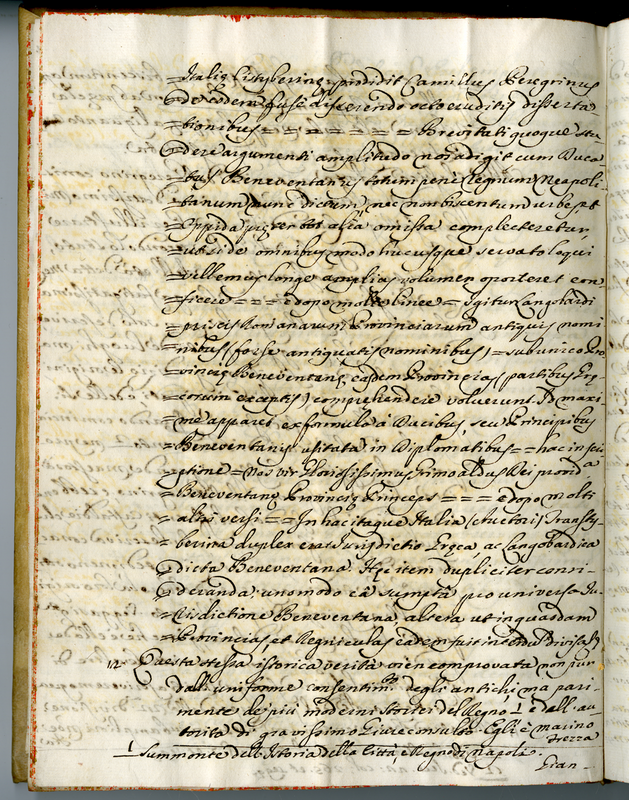 =Italiæ Cistyberinæ, prodidit Camillus Peregrinus
=de eadem fusè disserendo octo eruditis disserta-
=tionibus = = = = = = = Brevitati quoque stu-
=dere argumenti amplitudo nos adigit cum Duca
=tus Beneventanus totum penè Regnum Neapoli-
=tanum nunc dictum, nec non biscentum urbes, et
=Oppida præter tot alia omissa complecteretur,
=ubi si de omnibus modo hucusque servato loqui
=vellemus longe amplius volumen oporteret con
=ficere = = = e dopo molte linee = Igitur Langobardi
=priscis Romanarum Provinciarum antiquis nomi
=nibus (forse antiquatis nominibus) = sub unico Pro
=vinciæ Beneventanæ, easdem Provincias (partibus Græ-
=corum exceptis) comprehendere voluerunt. Id maxi-
=me apparet ex formula à Ducibus, seu Principibus
=Beneventanis usitata in Diplomatibus = = hac inscri
=ptione = Nos vir Gloriosissimus Grimoaldus Dei provid.a
=Beneventanæ Provinciæ Princeps = = = e dopo molti
=altri versi = = In hac itaque Italia (Auctori) Transty-
=berina duplex erat Jurisdictio Græca, ac Langobardica
=dicta Beneventana. Hæc item dupliciter consi-
=deranda: uno modo eà sumptà pro universa Ju-
=risdictione Beneventana, altera ut in quasdam
=Provincias, et Regniculas eadem fuit interdum divisa.
12. Questa stessa istorica verità vien comprovata non pur
dall'uniforme consentim.to degli antichi, ma pari-
mente de' più moderni storici del Regno 1 e dall'au
torità di gravissimo Giureconsulto. Egli è Marino
Frezza
1 Summonte dell'Istoria della Città, e Regno di Napoli.
Gian-